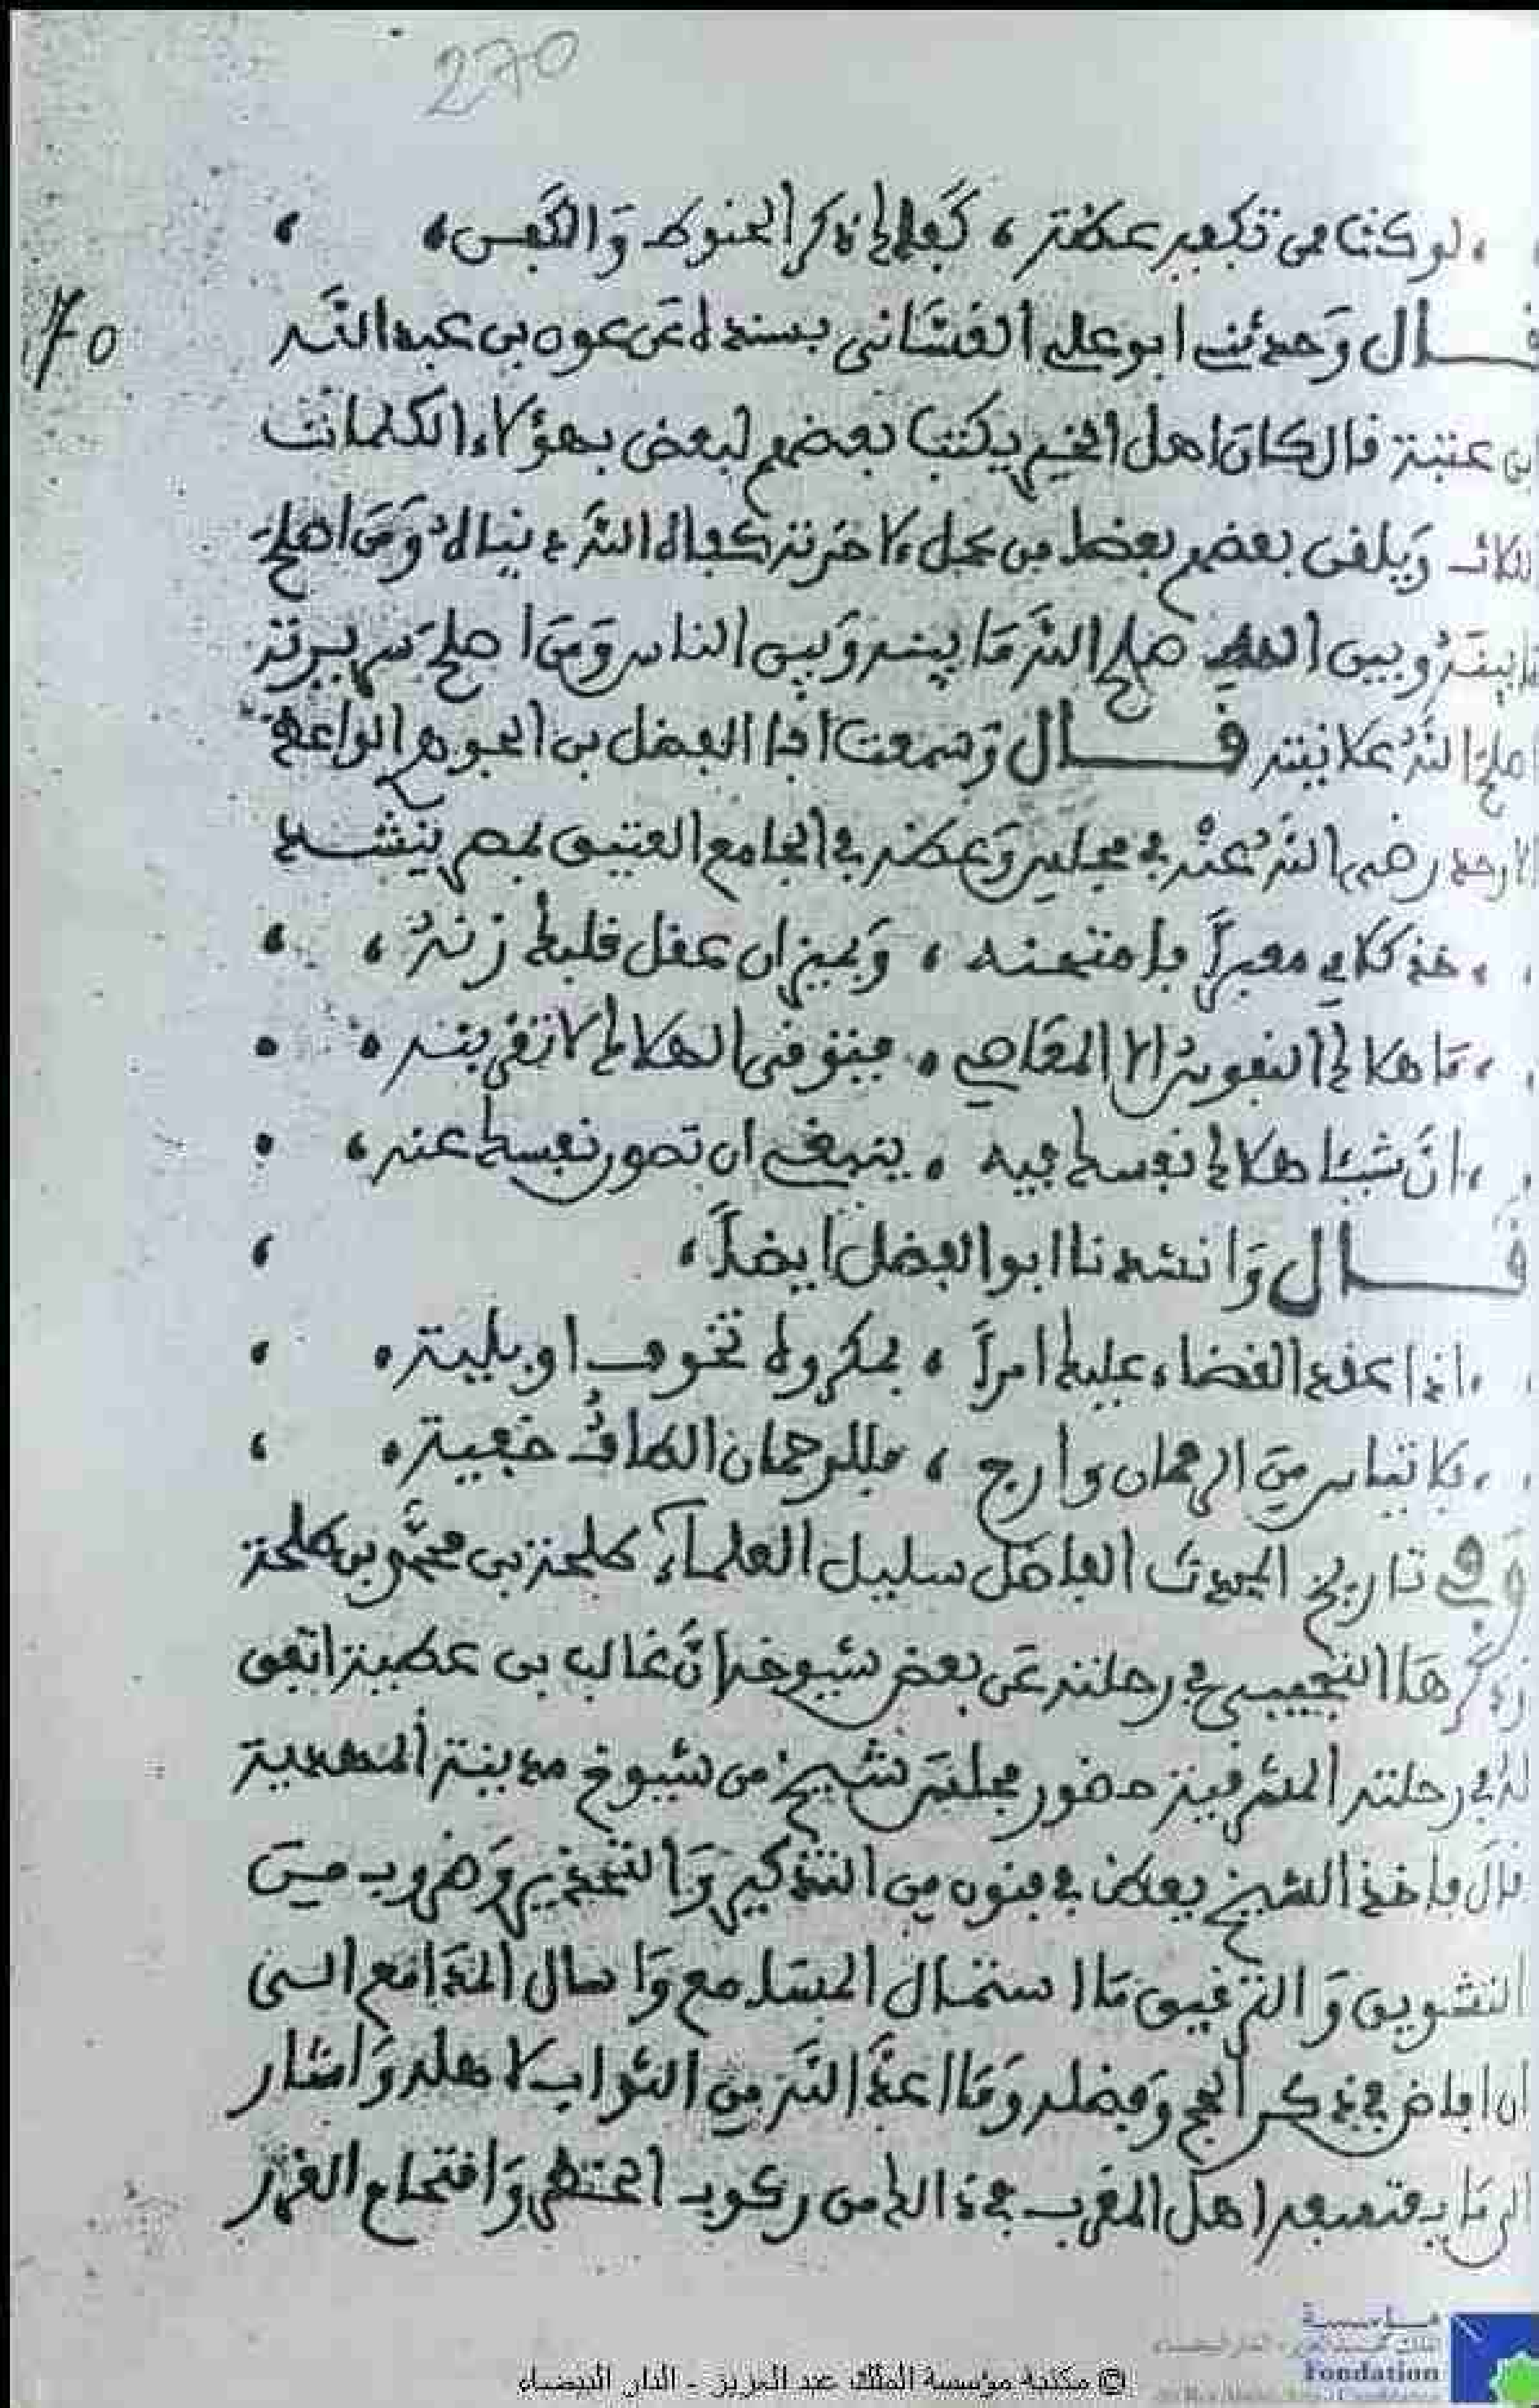 270
لو كنت في تكفير عظة ، كفاك ذكر الحنوط والكفن ،
70
قال وحدثني ابو علي الغساني بسنده عن عون بن عبد الله
بن عتبة قال كان اهل الخير يكتب بعضهم لبعض بهؤلاء الكلمات
الثلاث ويلقى بعضهم بعضا من عمل لاخرته كفاه الله دنياه ومن اصلح
ما بينه وبين الله اصلح الله ما بينه وبين الناس ومن اصلح سريرته
اصلح الله علانيته قال وسمعت ابا الفضل بن الجوهري الواعظ
الاوحد رضي الله عنه في مجلس وعظه في الجامع العتيق بمصر ينشد
خذ كلامي معبرا فامتحنه ، وبميزان عقل قلبك زنه ،
ما هلاك النفوس الا المعاصي ، فتوقى الهلاك لا تقربنه
ان شيئا هلاك نفسك فيه ، ينبغي ان تصون نفسك عنه ،
قال وانشدنا ابو الفضل ايضا ،
اذا عقد القضاء عليك امرا ، بمكروه تخوف او بلية ،
فلا تياس من الرحمان وارج ، فللرحمان الطاف خفية ،
وفي تاريخ المحدث الفاضل سليل العلماء طلحة بن محمد بن طلحة
وذكرها التجيبي في رحلته عن بعض شيوخه ان غالب بن عطية اتفق
له في رحلته المشرقية حضور مجلس شيخ من شيوخ مدينة المهدية
قال فاخذ الشيخ بعظ في فنون من التذكير والتحذير وضروب من
التشويق والترقيق ما استمال المسامع واسال المدامع الى
ان افاض في ذكر الحج وفضله وما اعد الله من الثواب لاهله واشار
الى ما يقتسمه اهل المغرب في ذالك من ركوب الخطر واقتحام الغرر
© مكتبة مؤسسة الملك عبد العزيز - الدار البيضاء
مؤسسة
Fondation